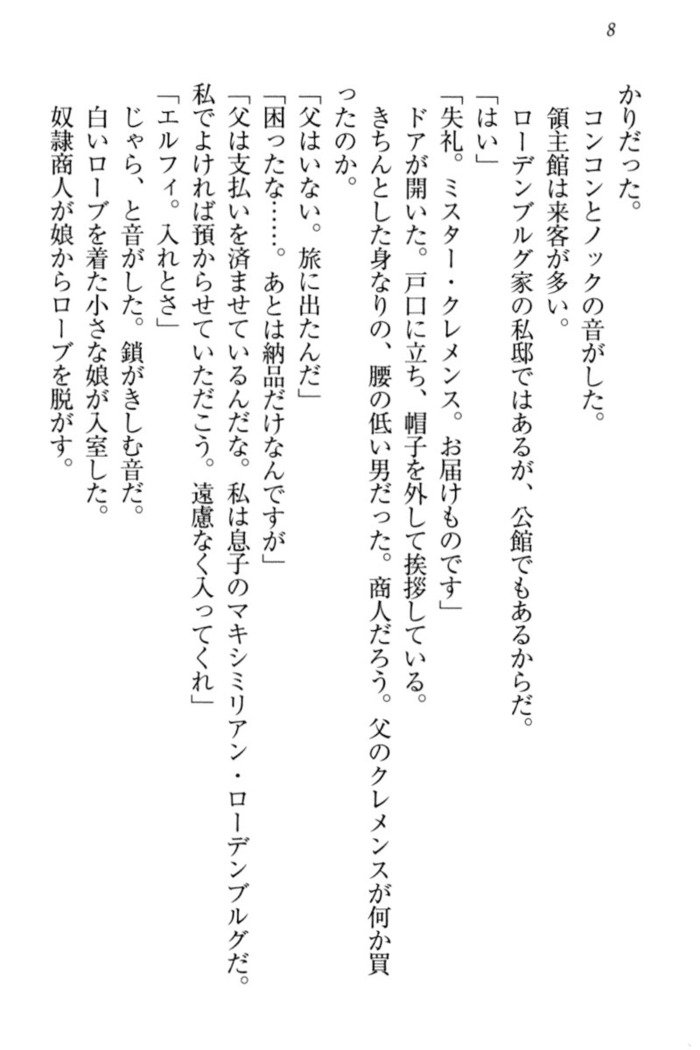 8
かりだった。
コンコンとノックの音がした。
領主館は来客が多い。
ローデンブルグ家の私邸ではあるが、公館でもあるからだ。
「はい」
「失礼。ミスター・クレメンス。お届けものです」
ドアが開いた。戸口に立ち、帽子を外して挨拶している。
きちんとした身なりの、腰の低い男だった。商人だろう。父のクレメンスが何か買
ったのか。
「父はいない。旅に出たんだ」
「困ったな……。あとは納品だけなんですが」
「父は支払いを済ませているんだな。私は息子のマキシミリアン・ローデンブルグだ。
私でよければ預からせていただこう。遠慮なく入ってくれ」
「エルフィ。入れとさ」
じゃら、と音がした。鎖がきしむ音だ。
白いローブを着た小さな娘が入室した。
奴隷商人が娘からローブを脱がす。